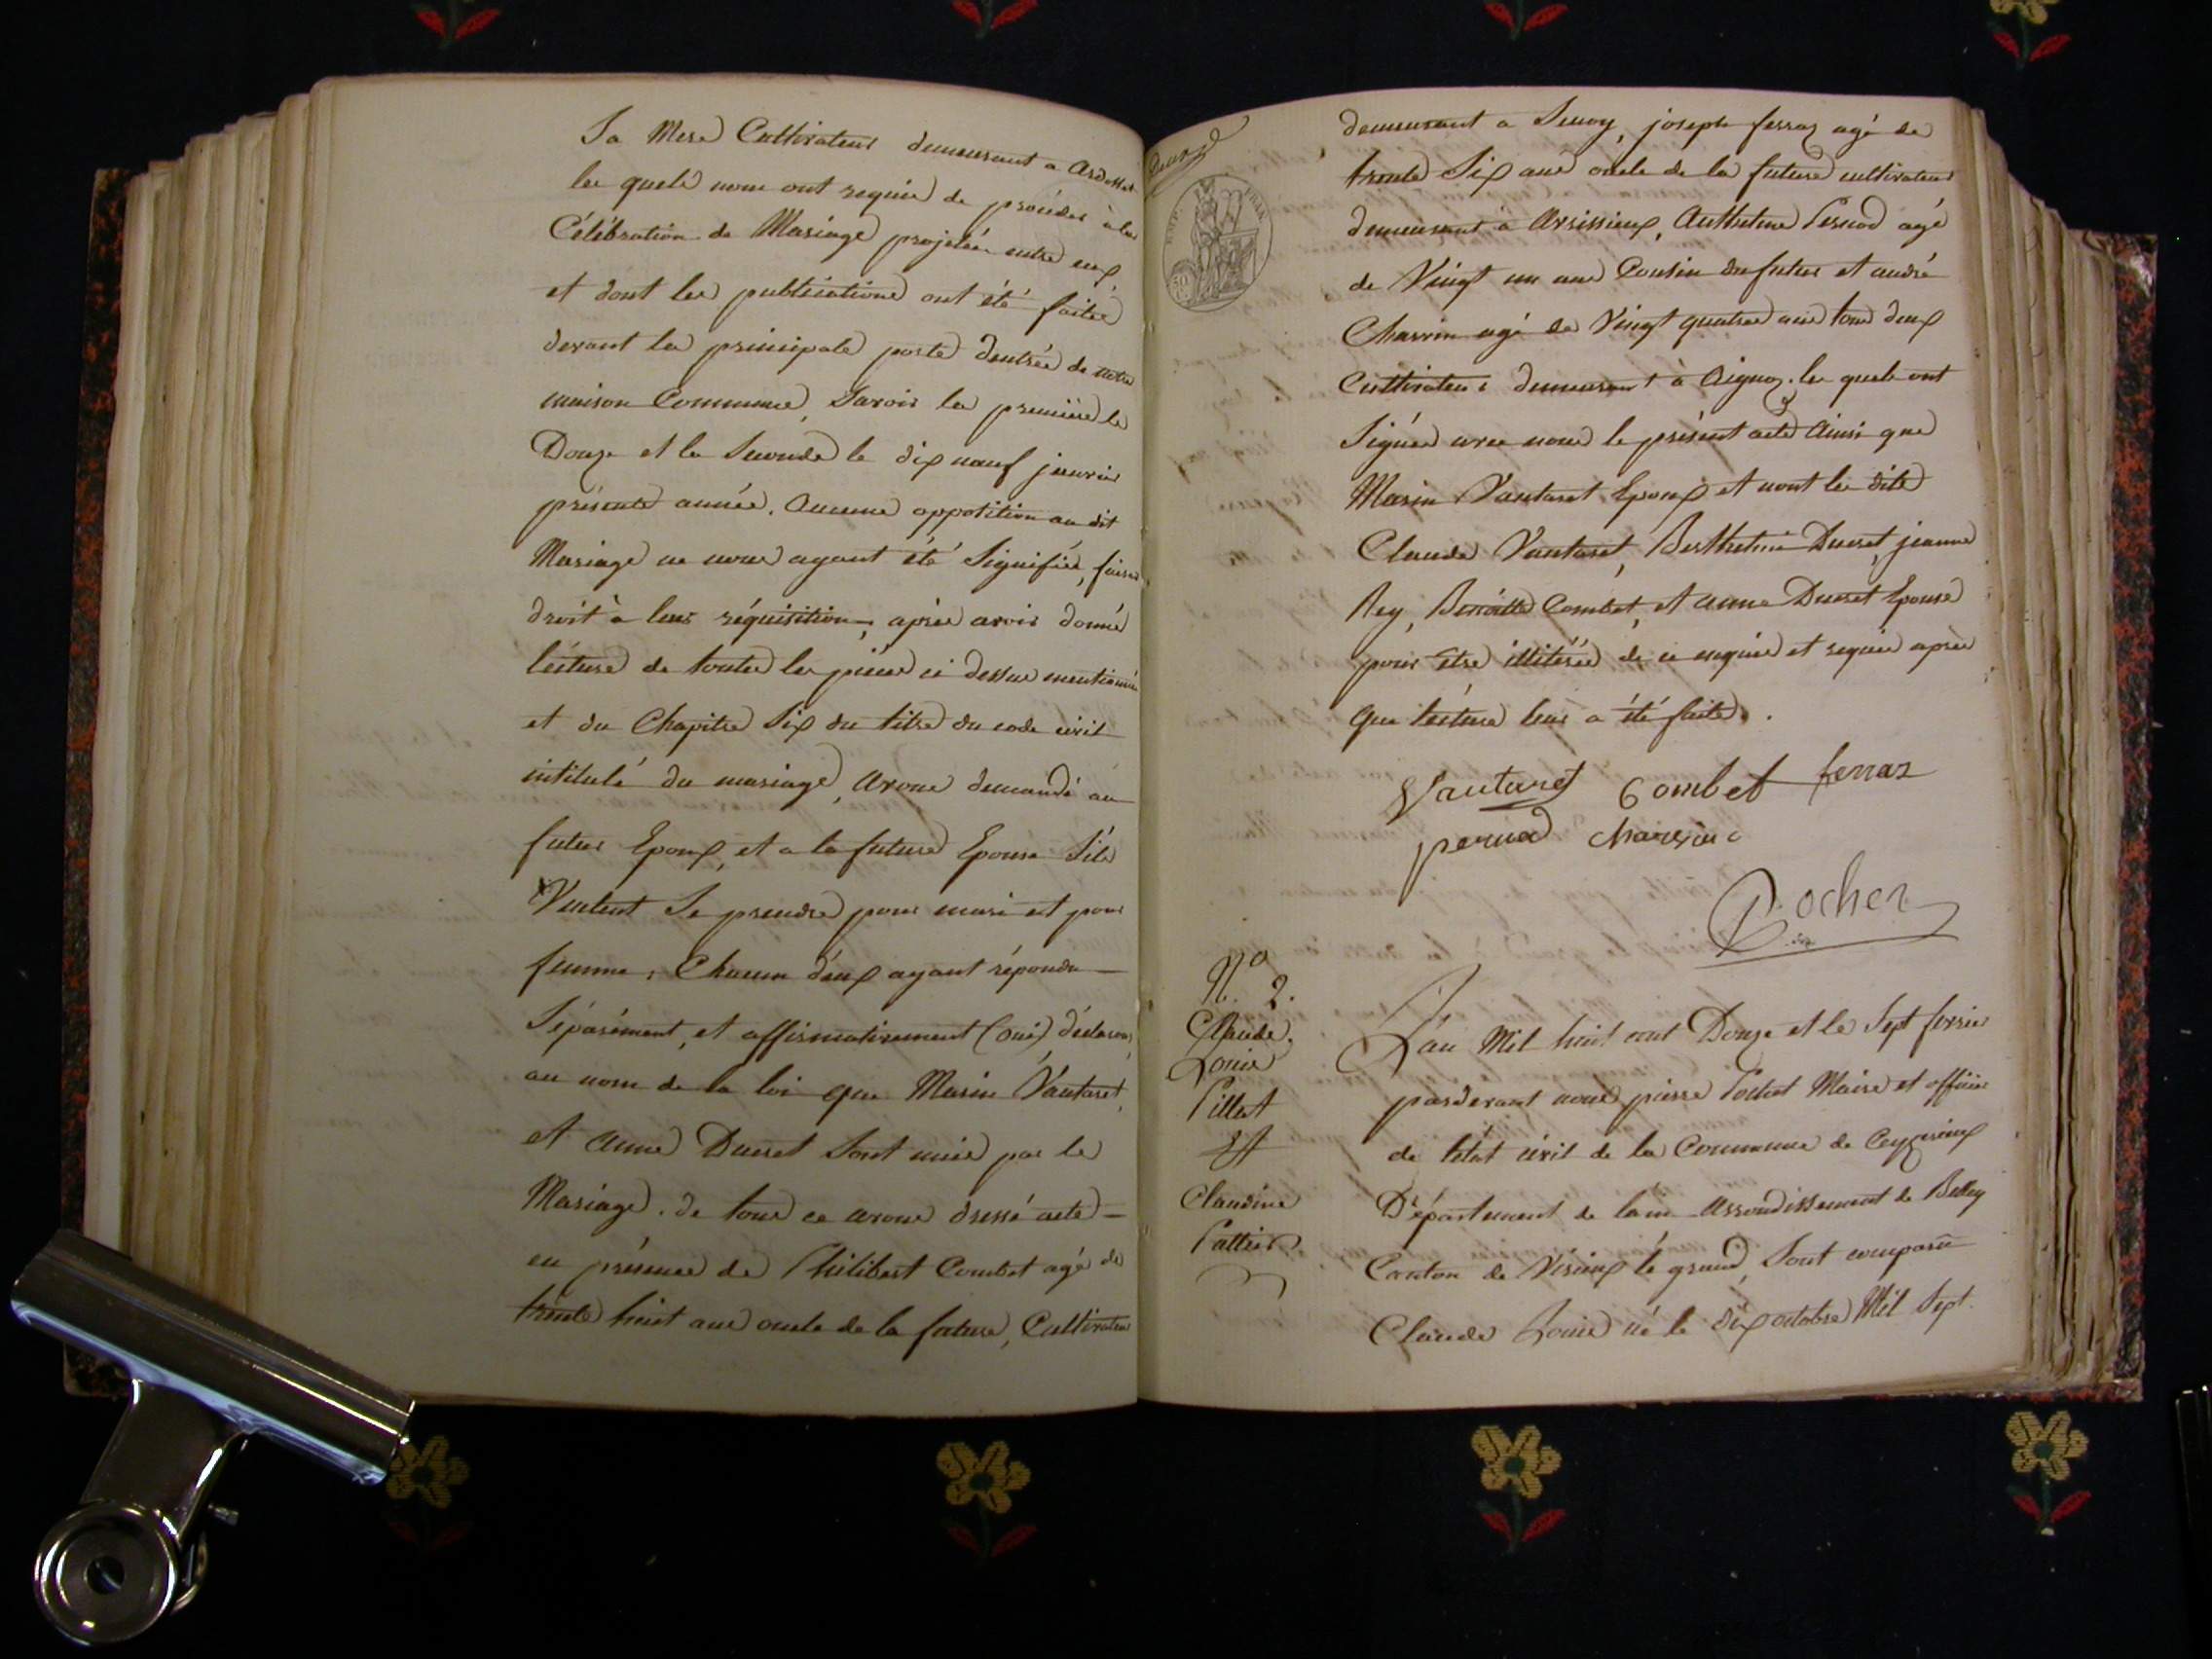 Sa Mere Cultivateur demeurant a
les quels nous ont requis de procéder à la
Célébration de Mariage projetée entre eux
et dont les publications ont été faites
devant la principale porte dentrée de notre
maison Commune, Savoir la première le
Douze et la Seconde le dix neuf janvier
présente année. Aucune opposition au dit
Mariage ne nous ayant été Signifiée, faisant
droit à leur réquisition, après avoir donné
lécture de toutes les pièces ci dessus mentionnées
et du Chapitre Six du titre du code civil
intitulé du mariage, avons demandé au
futur Epoux, et a la future Epouse S'ils
Veulent Se prendre pour mari et pour
femme; Chacun d'eux ayant répondu
Séparément, et affirmativement (oui) déclarons,
au nom de la loi que Marin Vautaret,
et Anne Ducret Sont unis par le
Mariage. de tous ce avons dressé acte
en présence de Philibert Combet agé de
trente huit ans oncle de la future, Cultivateur
demeurant a joseph ferraz agé de
trente Six ans oncle de la future cultivateur
demeurant à Anthelme Pernod agé
de Vingt un ans Cousin du futur et andré
Charvin agé de Vingt quatre ans tous deux
Cultivateurs demeurant à Aignoz. les quels ont
Signés avec nous le présent acte Ainsi que
Marin Vautaret Epoux et nont les dits
Claude Vautaret, Berthelmi Ducret, jeanne
Rey, Benoitte Combet, et anne Ducret Epouse
pour être illitérés de ce enquis et requis après
que lécture leur a été faite.
Vautaret Combet ferraz
pernod Charvin
Pochet
EMP. FRAN.
50
No 2.
Claude
Louis
Pillat
Et
Claudine
L'an Mil huit cent Douze et le Sept fevrier
pardevant nous pierre Pochet Maire et officier
de létat civil de la Commune de Ceyzerieux
Département de lain Arrondissement de Belley
Canton de Virieux le grand, Sont comparu
Claude Louis né le dix octobre Mil Sept